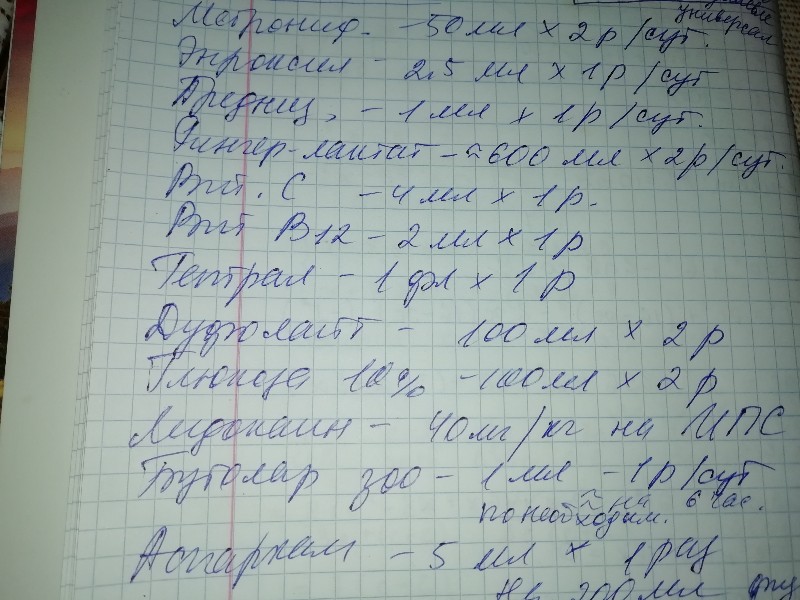 универсал
Метронид. - 50 мл х 2 р/сут.
Энроксил - 2,5 мл х 1 р/сут
Предниз. - 1 мл х 1 р/сут.
Рингер-лактат - ≈ 600 мл х 2 р/сут.
Вит. С - 4 мл х 1 р.
Вит В12 - 2 мл х 1 р
Гептрал - 1 фл х 1 р
Дуфалайт - 100 мл х 2 р
Глюкоза 10% - 100 мл х 2 р
Лидокаин - 40 мг/кг на ИПС
Бутолар зоо - 1 мл - 1 р/сут
≈ на 6 час.
по необходим.
Аспаркам - 5 мл х 1 раз
на 200 мл